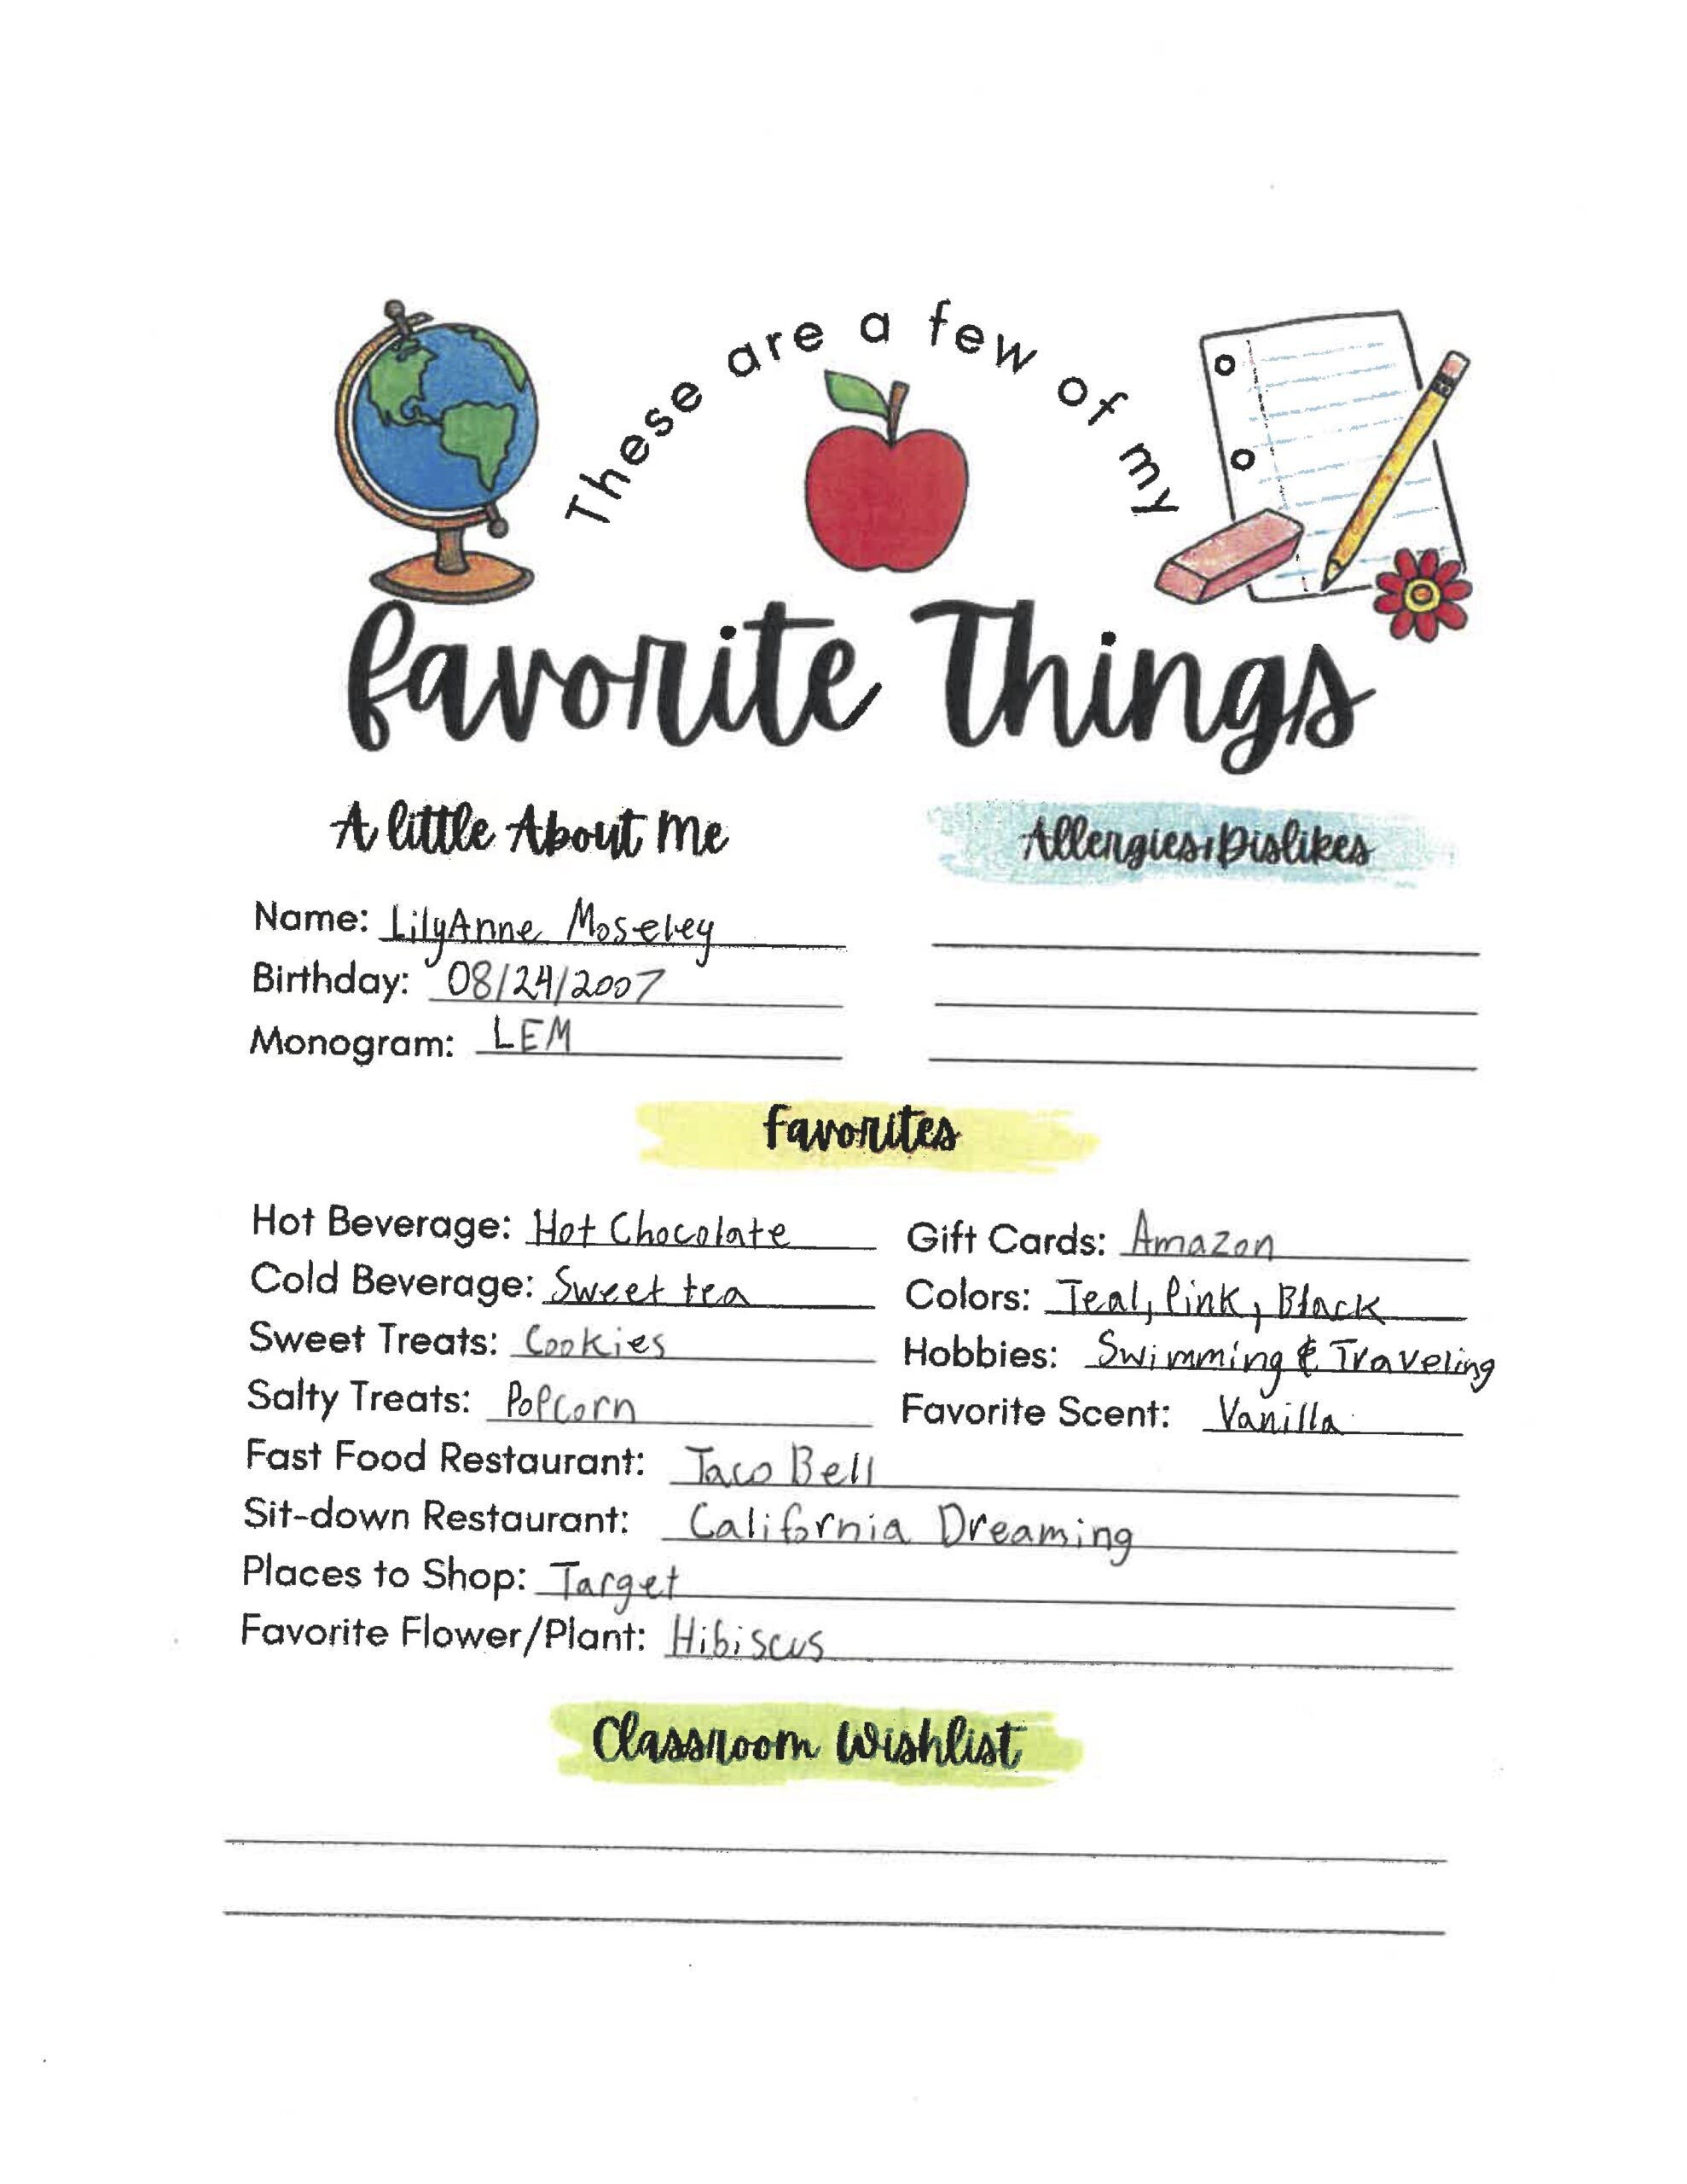 These are a few of my
favorite Things
A little About Me
Allergies/Dislikes
Name: LilyAnne Moseley
Birthday: 08/24/2007
Monogram: LEM
favorites
Hot Beverage: Hot Chocolate
Gift Cards: Amazon
Cold Beverage: Sweet tea
Colors: Teal, Pink, Black
Sweet Treats: Cookies
Hobbies: Swimming & Traveling
Salty Treats: PopCorn
Favorite Scent: Vanilla
Fast Food Restaurant: Taco Bell
Sit-down Restaurant: California Dreaming
Places to Shop: Target
Favorite Flower/Plant: Hibiscus
Classroom Wishlist